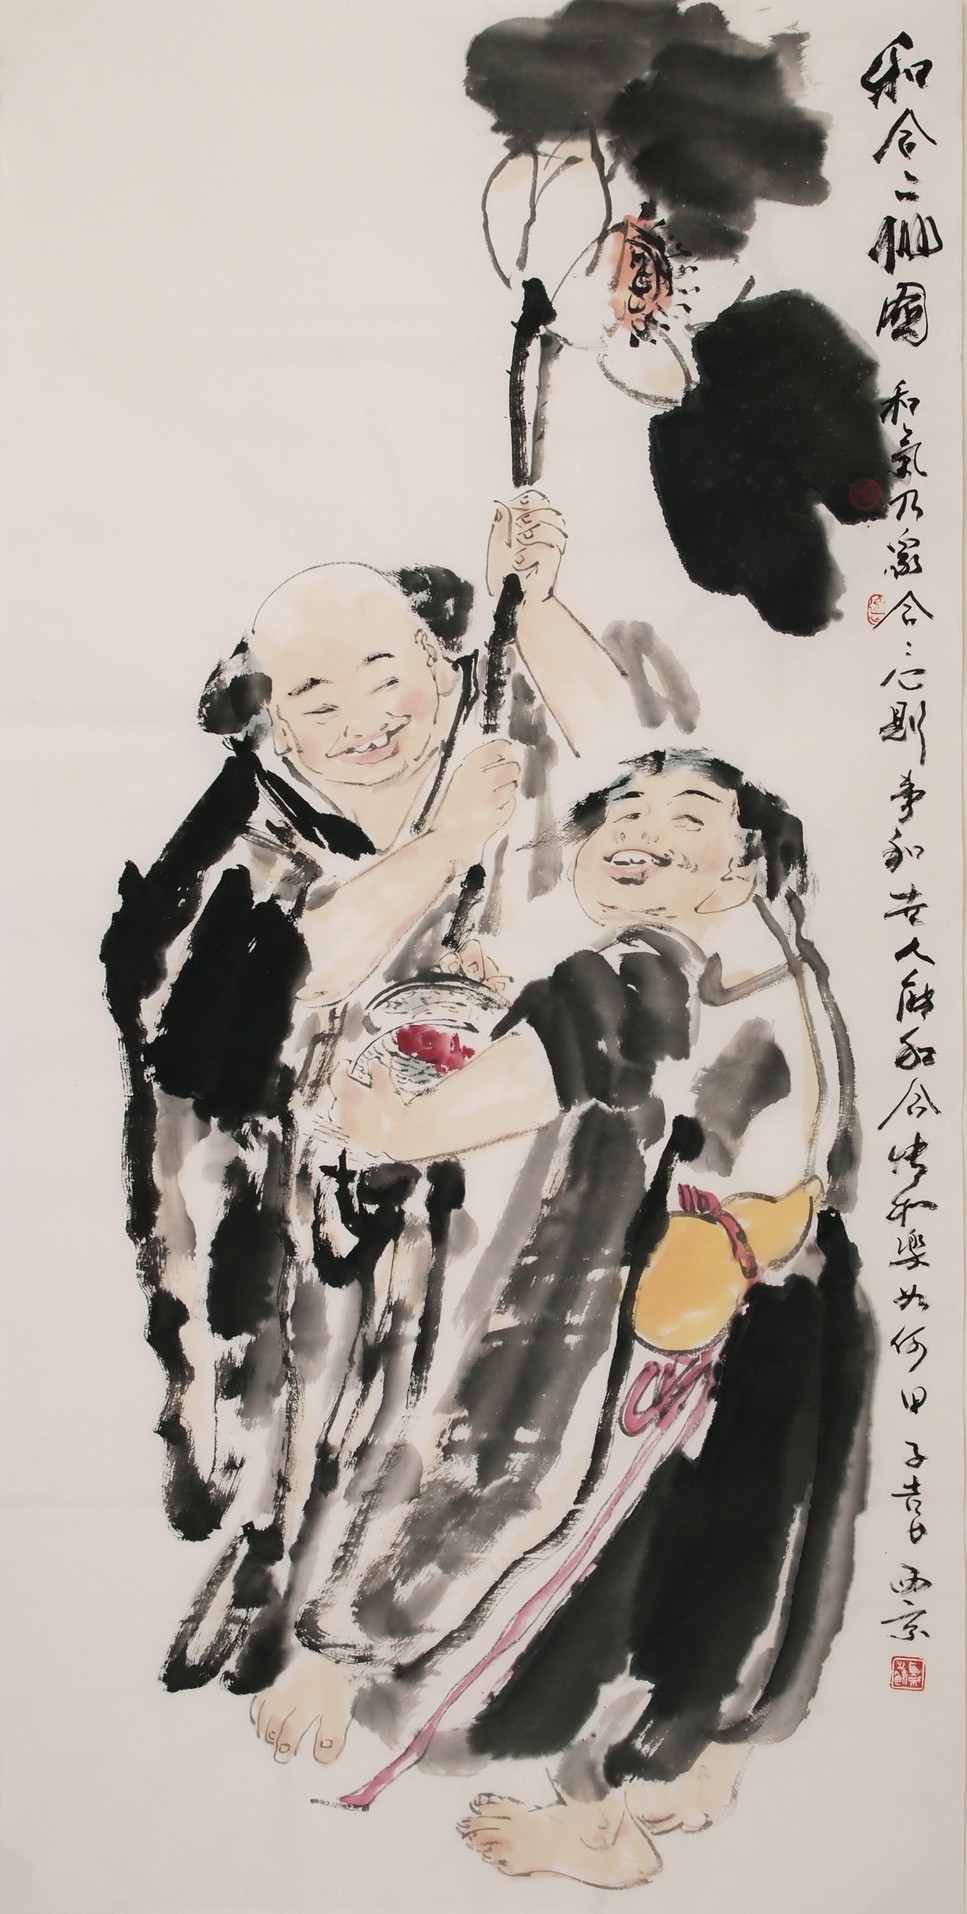 和合二仙圖
和氣乃象合三心則事和吉人能和合情和樂如何甲子吉日西京